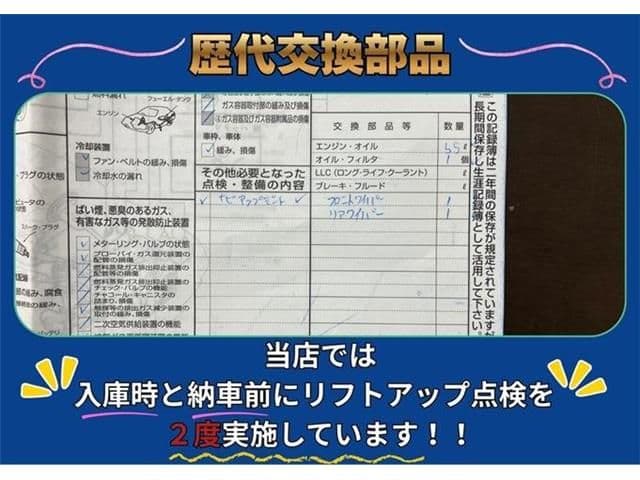 歴代交換部品
フューエル・タンク
エンジン
冷却装置
ファン・ベルトの緩み、損傷
冷却水の漏れ
ばい煙、悪臭のあるガス、
有害なガス等の発散防止装置
メターリング・バルブの状態
ブローバイ・ガス還元装置の
配管の損傷
燃料蒸発ガス排出抑止装置の
配管等の損傷
燃料蒸発ガス排出抑止装置の
チェック・バルブの機能
チャコール・キャニスタの
詰まり、損傷
触媒等の排出ガス減少装置の
取付の緩み、損傷
二次空気供給装置の機能
ガス容器取付部の緩み及び損傷
車枠、車体
緩み、損傷
その他必要となった
点検・整備の内容
交換部品等 数量
エンジン・オイル 5.5 ℓ
オイル・フィルタ 1 個
LLC(ロング・ライフ・クーラント) ℓ
ブレーキ・フルード ℓ
フロントワイパー 1
リアワイパー 1
この記録簿は二年間の保存が規定されていますが
長期間保存し生涯記録簿として活用して下さい。
当店では
入庫時と納車前にリフトアップ点検を
2度実施しています!!